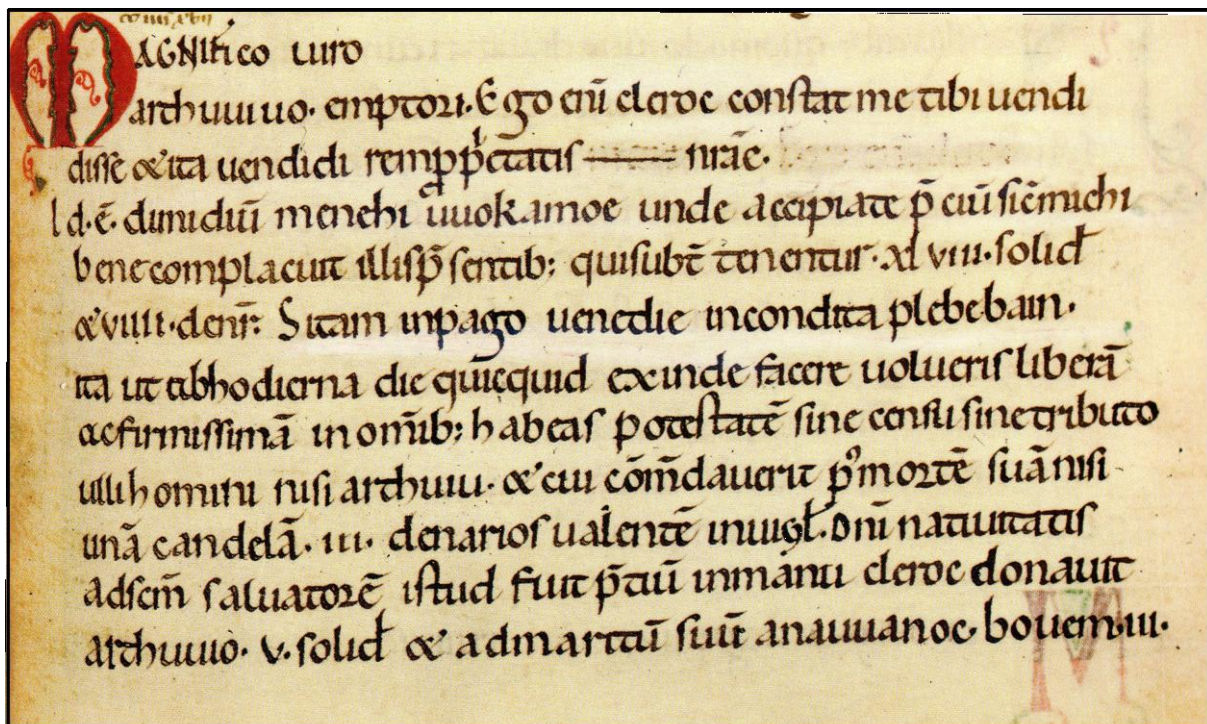 MAGNIFICO UIRO
arthuuiuo. emptori. Ego eni cleroc constat me tibi uendi
disse & ita uendidi rem p̱p̄etatis —— nr̄āe.
Id.ē. dimidiū menehi uuokamoe unde accipiate p̄ciū sic̄ michi
bene complacuit illis p̄sentib: qui subt̄ tenentur. xl viii. solid
& viiii. denr̄: Sitam in pago uenedie in condita plebe bain.
ita ut ab hodierna die quicquid exinde facere uolueris liberā
ac firmissimā in omīb: habeas potestatē sine censu sine tributo
ulli homini nisi arthuiu. & cui cōm̄dauerit p' mortē suā nisi
unā candelā. iii. denarios ualentē in uigl. dn̄i natiuitatis
ad sc̄m saluatorē istud fuit p̄tiū in manu cleroc donauit
arthuuio. v. solid & ad martiū suū anauuanoc bouem. iii.